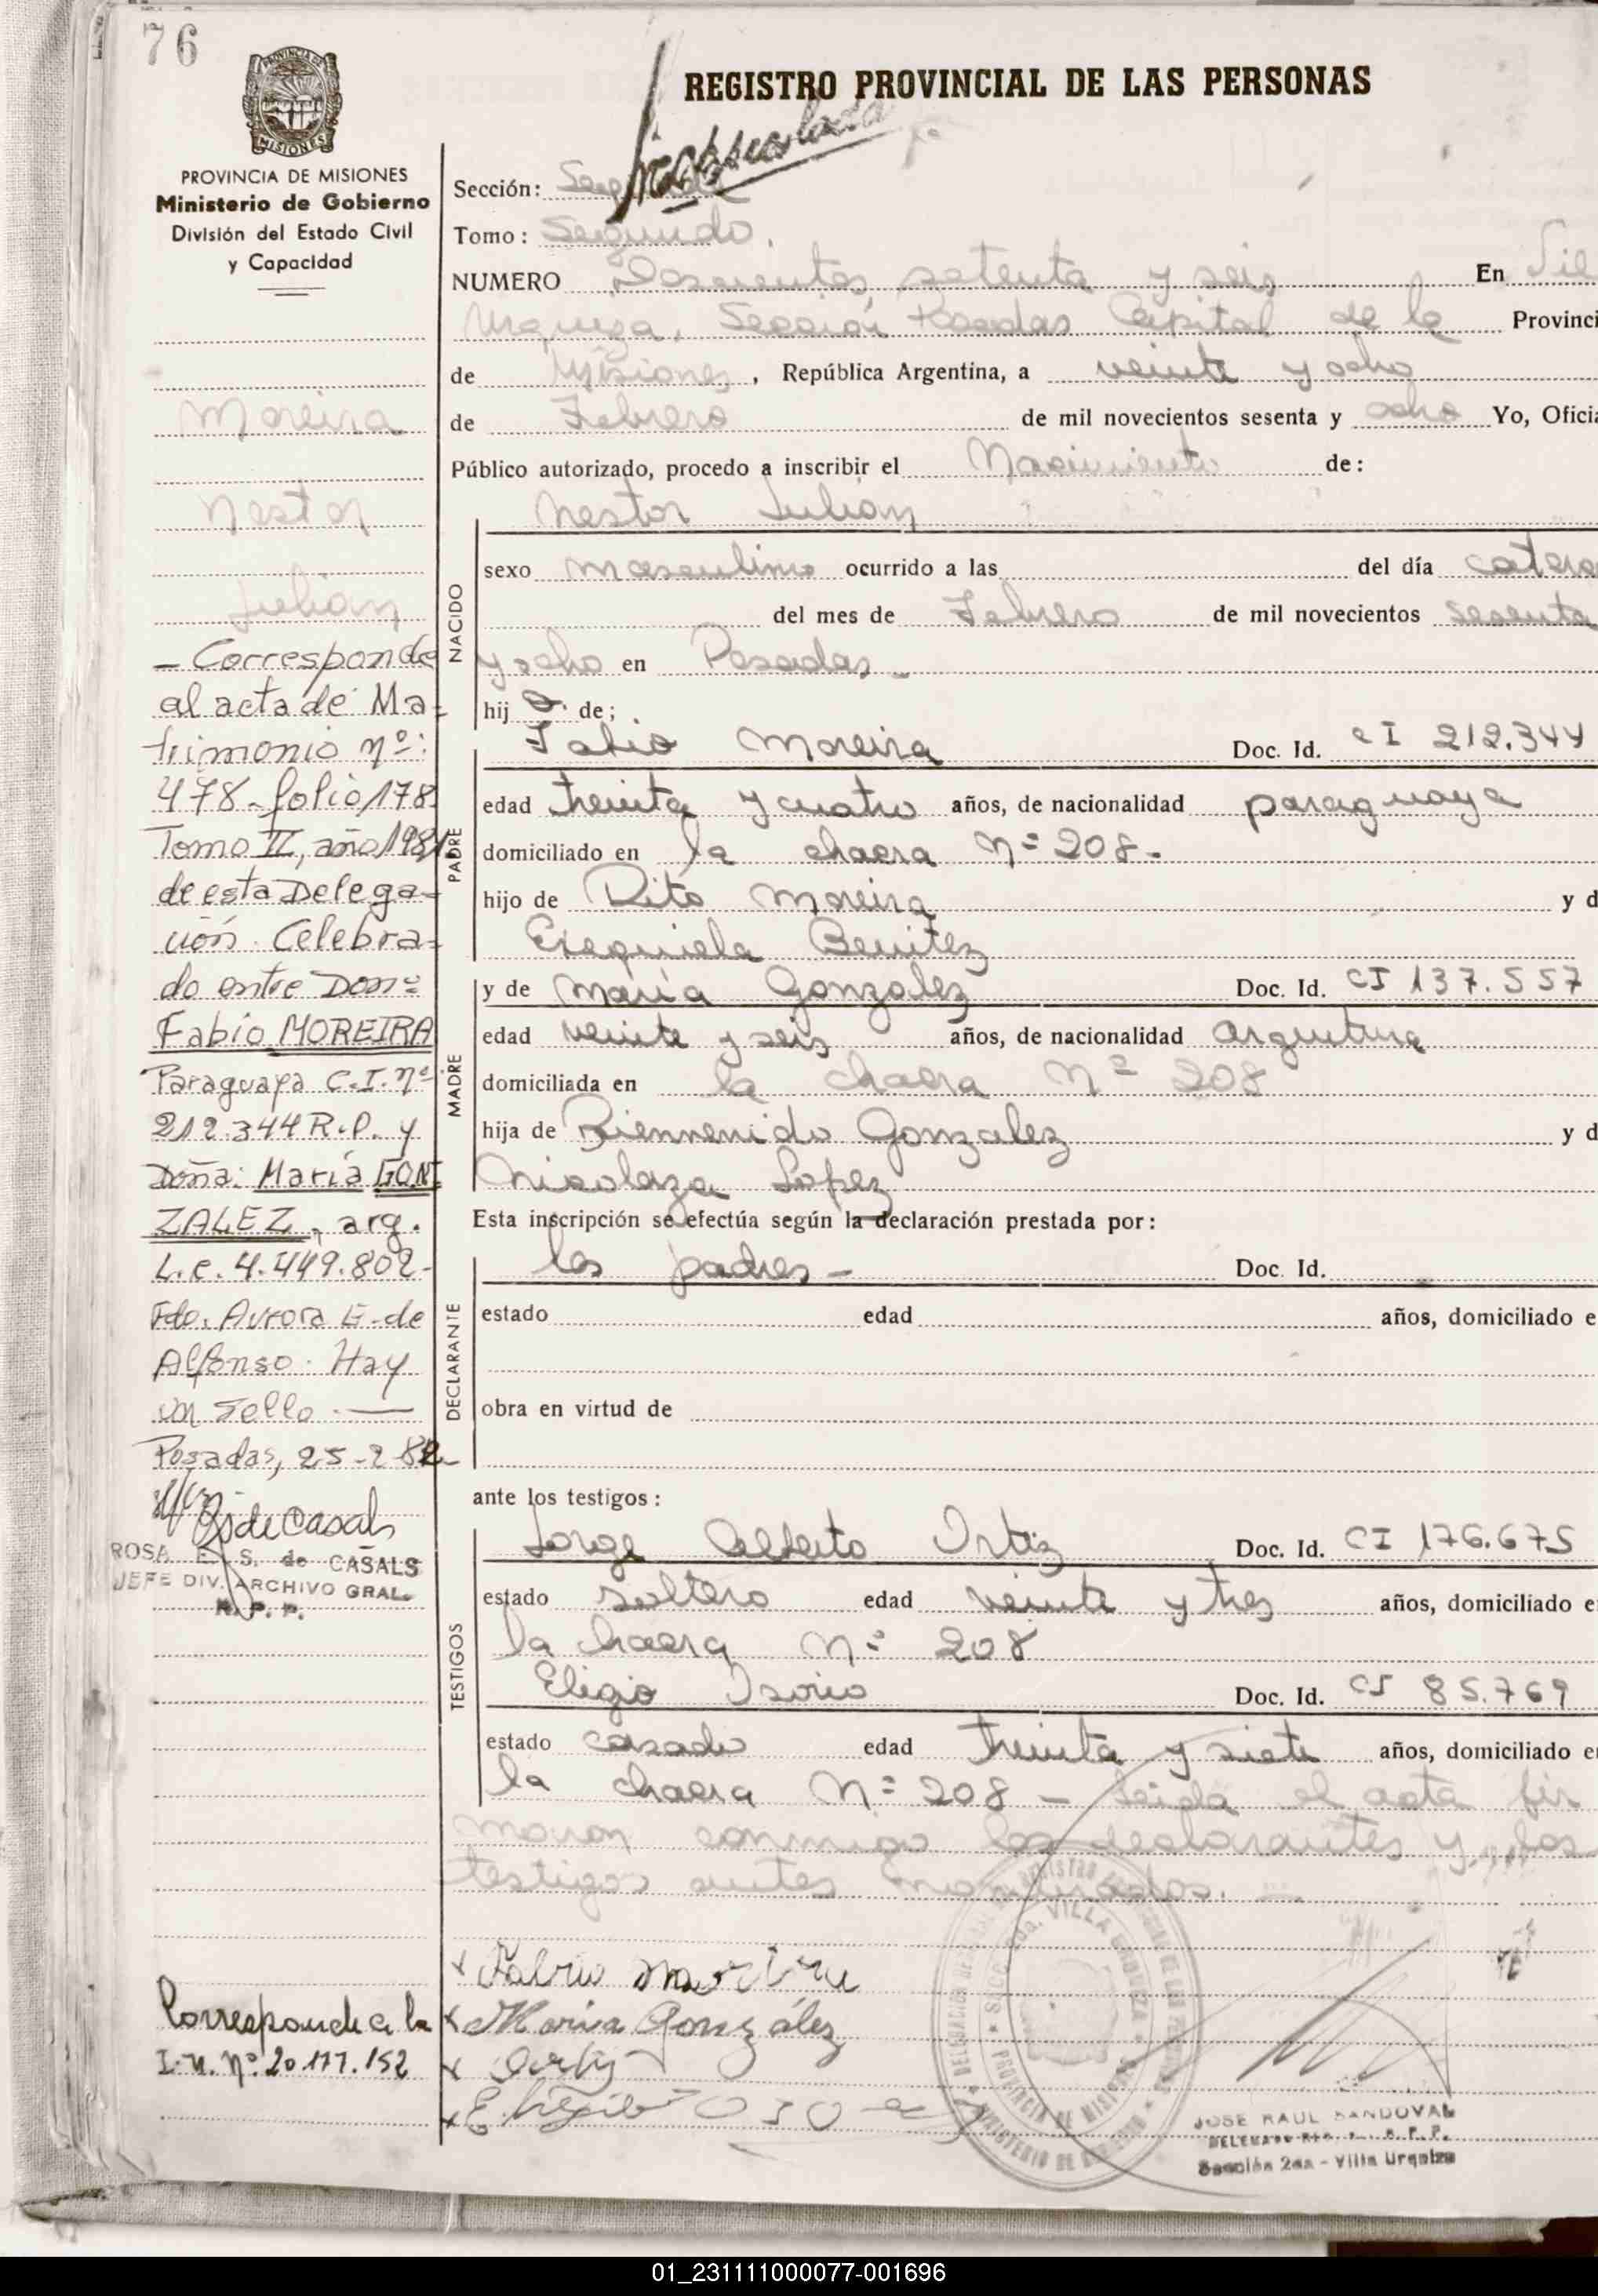 76
REGISTRO PROVINCIAL DE LAS PERSONAS
PROVINCIA DE MISIONES
MISIONES
PROVINCIA DE MISIONES
Ministerio de Gobierno
División del Estado Civil
y Capacidad
Moreira
Nestor
Julian
- Corresponde
al acta de Ma-
trimonio nº:
478- folio 178
Tomo II, año 1981
de esta Delega-
ción. Celebra-
do entre Don:
Fabio MOREIRA
Paraguaya C.I. nº
212.344 R.P. y
Doña: María GON
ZALEZ, arg.
L.C. 4.449.802-
Fdo. Aurora E. de
Alfonso. Hay
un sello.
Posadas, 25-2-82
ROSA E. S. de CASALS
JEFE DIV. ARCHIVO GRAL.
R. P. P.
Corresponde a la
I.N. nº. 20.117.152
Sección: Segunda
Tomo: Segundo.
NUMERO Doscientos setenta y seis En
Urquiza, Sección Posadas Capital de la Provinci
de Misiones, República Argentina, a veinte y ocho
de Febrero de mil novecientos sesenta y ocho Yo, Oficia
Público autorizado, procedo a inscribir el Nacimiento de:
Nestor Julian
NACIDO
sexo masculino ocurrido a las del día catorc
del mes de Febrero de mil novecientos sesenta
y ocho en Posadas
hij o de;
PADRE
Fabio Moreira Doc. Id. CI 212.344
edad treinta y cuatro años, de nacionalidad paraguaya
domiciliado en la chacra Nº 208.
hijo de Rito Moreira y d
Exequiela Benitez
MADRE
y de María Gonzalez Doc. Id. CI 137.557
edad veinte y seis años, de nacionalidad argentina
domiciliada en la chacra Nº 208
hija de Biennenido Gonzalez y d
Nicolaza Lopez
Esta inscripción se efectúa según la declaración prestada por:
DECLARANTE
los padres - Doc. Id.
estado edad años, domiciliado e
obra en virtud de
ante los testigos:
TESTIGOS
Jorge Alberto Ortiz Doc. Id. CI 176.675
estado soltero edad veinte y tres años, domiciliado e
la chacra Nº 208
Eligio Osorio Doc. Id. CI 85.769
estado casado edad treinta y siete años, domiciliado e
la chacra Nº 208 - Leida el acta fir
maron conmigo los declarantes y los
testigos antes nombrados.
Fabio Moreira
María González
Ortiz
JOSE RAUL SANDOVAL
Sección 2da - Villa Urquiza
01_231111000077-001696